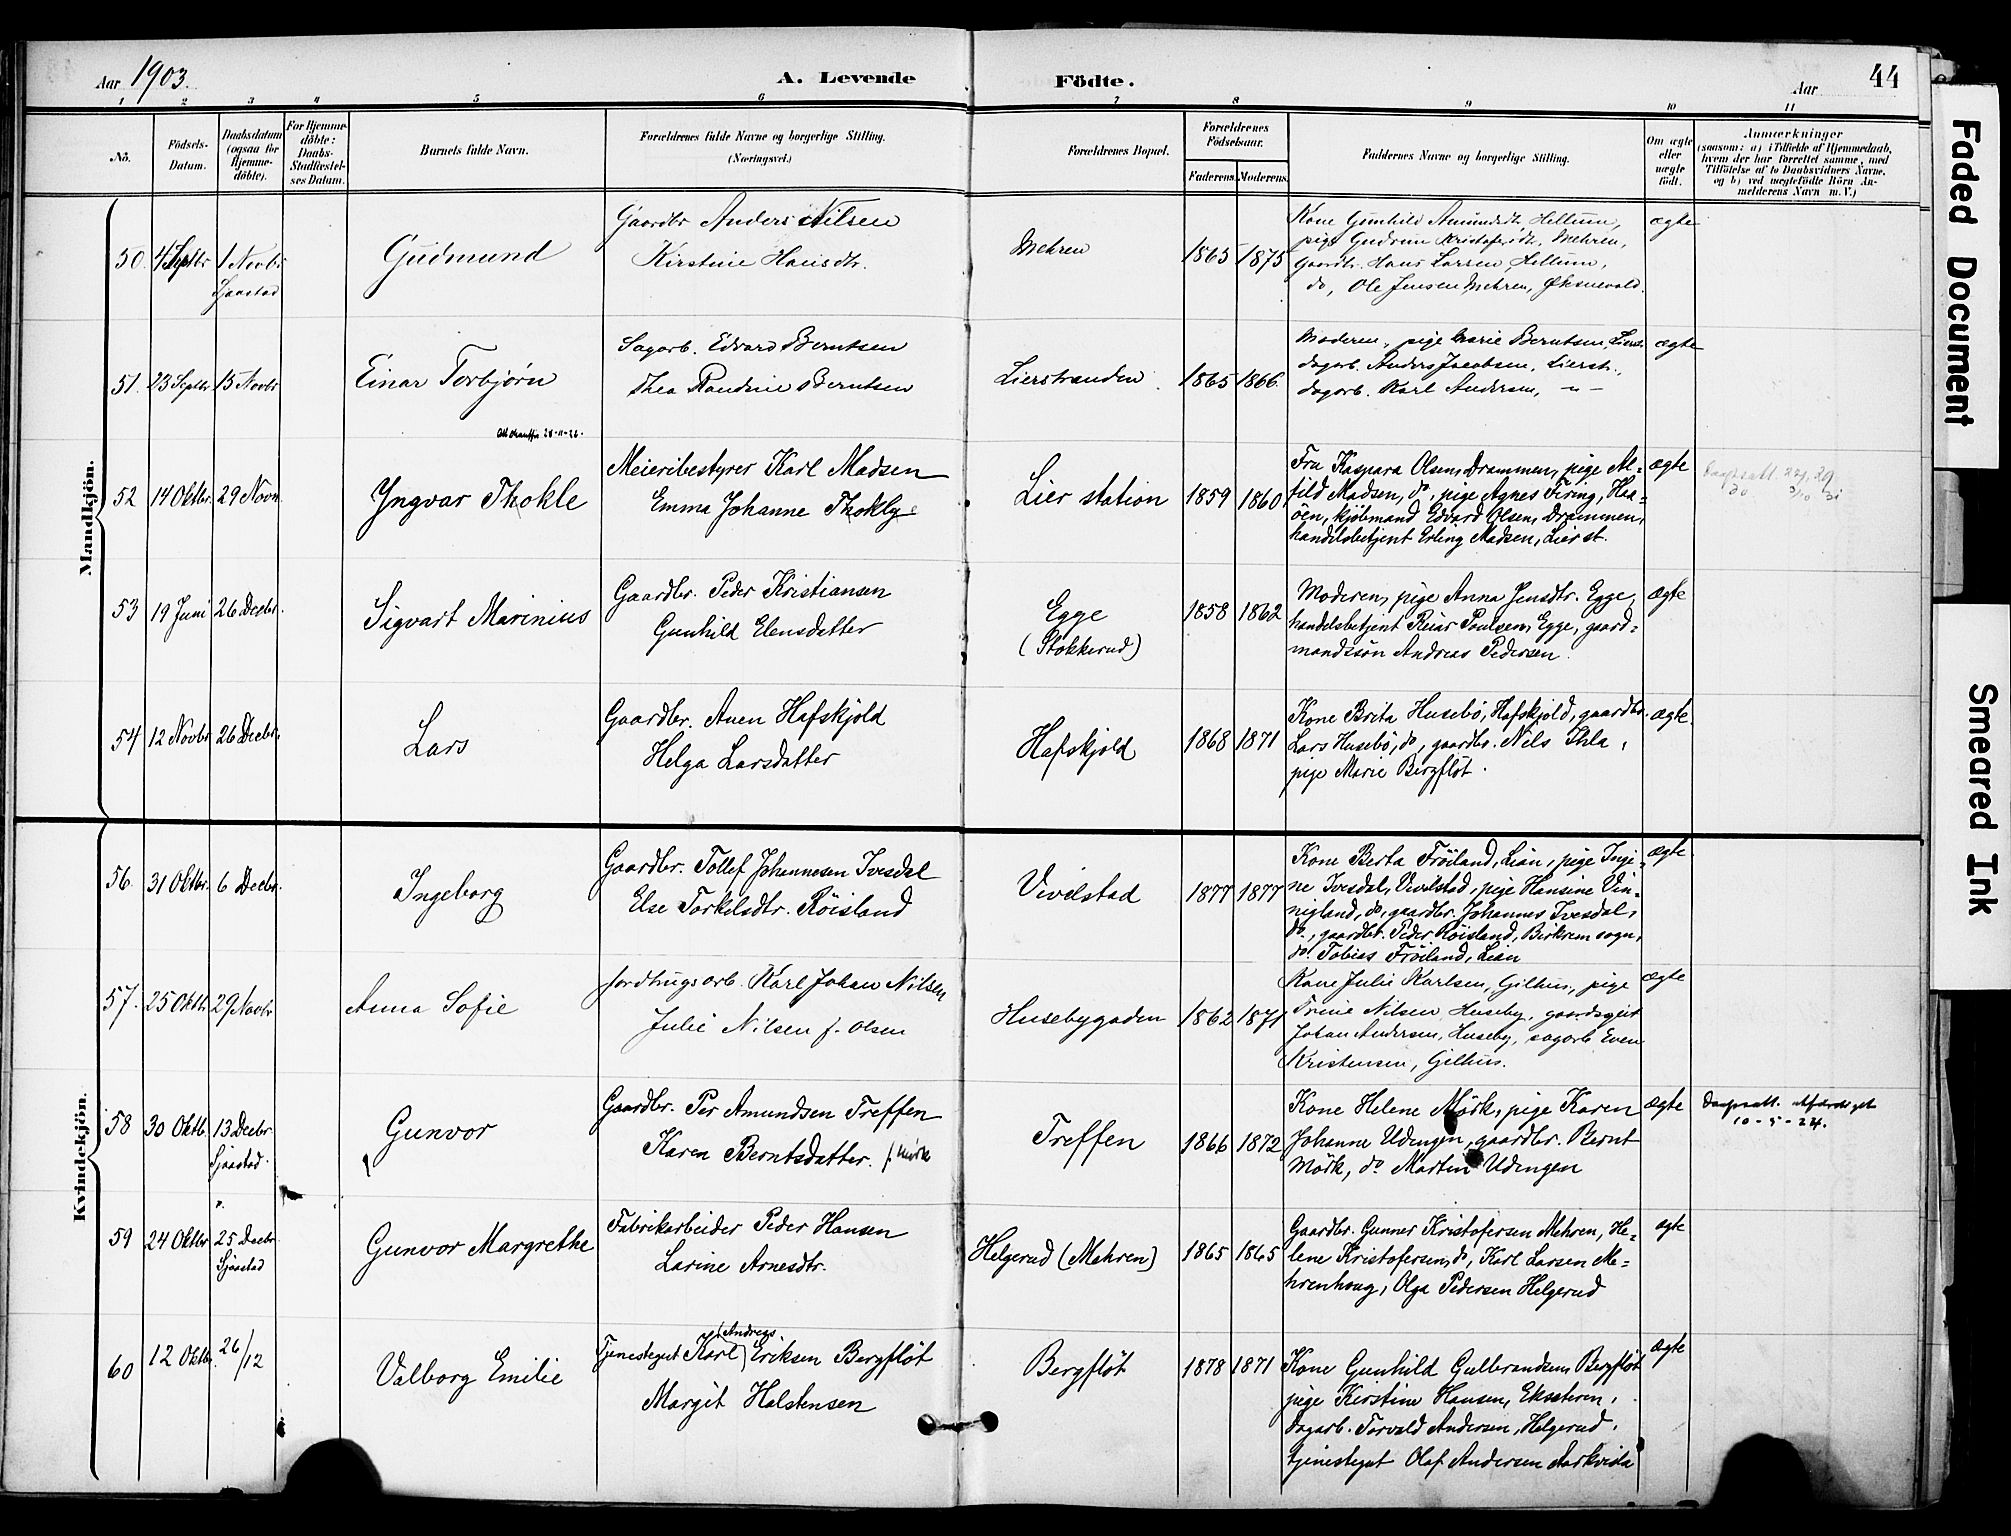 Aar 1903.
A. Levende
Födte.
Aar
44
1 2 3 4 5 6 7 8 9 10 11
No.
Födsels-
Datum.
Daabsdatum
(ogsaa for
Hjemme-
döbte).
For Hjemme-
döbte:
Daabs-
Stadfæstel-
ses Datum.
Barnets fulde Navn.
Forældrenes fulde Navne og borgerlige Stilling.
(Næringsvei.)
Forældrenes Bopæl.
Forældrenes
Födselsaar.
Faderens. Moderens.
Faddernes Navne og borgerlige Stilling.
Om ægte
eller
uægte
födt.
Anmærkninger
(saasom: a) i Tilfælde af Hjemmedaab,
hvem der har forrettet samme, med
Tilföielse af to Daabsvidners Navne.
og b) ved uægtefödte Börn An-
melderens Navn m. V.)
Mandkjön.
50. 4 Septbr 1 Novbr
Sjaastad
Gudmund
Gaardbr Anders Nilsen
Kirstine Hansdtr.
Mehren
1865 1875
Kone Gunhild Amundsdtr, Hellum,
pige Gudrun Kristofersdtr, Mehren,
Gaardbr. Hans Larsen, Hellum,
do, Ole Jensen Mehren, Øksnevald.
ægte
51. 23 Septbr 15 Novbr
Einar Torbjørn
Sagarb. Edvard Berntsen
Thea Randine Berntsen
Lierstranden
1865 1866
Moderen, pige Marie Berntsen, Lierst.
dagarb. Anders Jacobsen, Lierstr.,
dagarb. Karl Andersen, — " —
ægte
52 14 Oktbr. 29 Novn
Yngvar Thokle
Meieribestyrer Karl Madsen
Emma Johanne Thokly
Lier station
1859 1860
Fru Kaspara Olsen, Drammen, pige Al-
fild Madsen, do, pige Agnes Firing, Haa-
öen, kjöbmand Edvard Olsen, Drammen,
handelsbetjent Erling Madsen, Lier st.
ægte
53 19 Juni 26 Decbr.
Sigvart Marinius
Gaardbr. Peder Kristiansen
Gunhild Elensdatter
Egge
(Stokkerud)
1858 1862
Moderen, pige Anna Jensdtr. Egge,
handelsbetjent Reiar Poulsen, Egge, gaard-
mandssön Andreas Pedersen.
ægte
54 12 Novbr 26 Decbr.
Lars
Gaardbr. Auen Hafskjold
Helga Larsdatter
Hafskjold
1868 1871
Kone Brita Husebö, Hafskjold, gaardbr.
Lars Husebö, do, gaardbr. Nils Ihle,
pige Marie Bergflöt.
ægte.
Kvindekjön.
56 31 Oktbr. 6 Decbr.
Ingeborg
Gaardbr. Tollef Johannesen Ivesdal
Else Torkilsdtr. Röisland
Vivelstad
1877 1877
Kone Berta Fröiland, Lian, pige Ingi-
ne Ivesdal, Vivilstad, pige Hansine Vin-
nigland, do, gaardbr. Johannes Ivesdal,
do, gaardbr. Peder Röisland, Birkrem sogn,
do Tobias Fröiland, Lian
ægte.
57. 25 Oktbr 29 Novbr
Anna Sofie
Jordbrugsarb. Karl Johan Nilsen
Julie Nilsen f. Olsen
Husebygaden
1862 1871
Kone Julie Karlsen, Gilhus, pige
Trine Nilsen, Huseby, gaardsgut
Johan Andersen, Huseby, sagarb Even
Kristensen, Gilhus.
ægte
58 30 Oktb. 13 Decbr
Sjaastad.
Gunvor
Gaardbr. Per Amundsen Treffen
Karen Berntsdatter. f. Mörk
Treffen
1866 1872
Kone Helene Mörk, pige Karen
Johanne Udengen, gaardbr. Bernt
Mörk, do Martin Udengen
ægte
Daapsatt. utfærdiget
10-5-24.
59 24 Oktbr 25 Decbr
Sjaastad
Gunvor Margrethe
Fabrikarbeider Peder Hansen
Larine Arnesdtr.
Helgerud (Mehren)
1865 1865
Gaardbr. Gunner Kristofersen Mehren, He-
lene Kristofersen, do, Karl Larsen Me-
hrenhaug, Olga Pedersen Helgerud
ægte
60 12 Oktbr. 26/12
Valborg Emilie
Tjenestegut Karl (Andreas) Eriksen Bergflöt
Margit Halstensen
Bergflöt
1878 1871
Kone Gunhild Gulbrandsen, Bergflöt
pige Kirstine Hansen, Eksæteren,
Dagarb. Torvald Andersen, Helgerud,
tjenestegut Olaf Andersen Aarkvisla
ægte
Faded Document
Smeared Ink